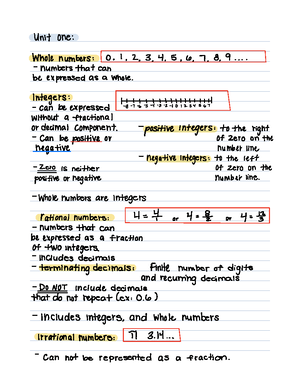 Unit one:
Whole numbers: 0, 1, 2, 3, 4, 5, 6, 7, 8, 9 ....
- numbers that can
be expressed as a whole.
Integers:
- can be expressed
without a fractional
or decimal component.
- Can be positive or
negative
- Zero is neither
positive or negative
- positive integers: to the right
of zero on the
number line.
- negative integers: to the left
of zero on the
number line.
- Whole numbers are integers
rational numbers: 4 = 4/1 or 4 = 8/2 or 4 =
- numbers that can
be expressed as a fraction
of two integers.
- includes decimals
- terminating decimals: finite number of digits
and recurring decimals
- DO NOT include decimals
that do not repeat (ex: 0.6)
- Includes integers, and whole numbers
Irrational numbers: π 3.14...
- Can not be represented as a fraction.